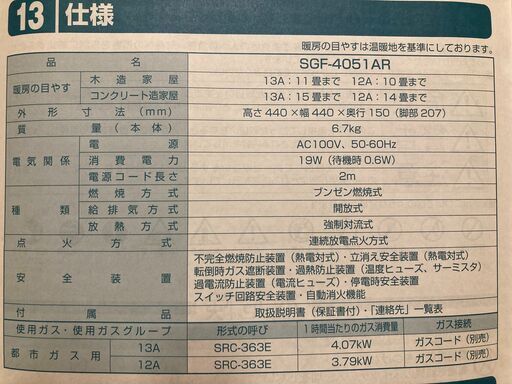 13 仕様
暖房の目やすは温暖地を基準にしております。
品名 SGF-4051AR
暖房の目やす 木造家屋 13A：11畳まで 12A：10畳まで
コンクリート造家屋 13A：15畳まで 12A：14畳まで
外形寸法（mm） 高さ440×幅440×奥行150（脚部207）
質量（本体） 6.7kg
電気関係 電源 AC100V、50-60Hz
消費電力 19W（待機時0.6W）
電源コード長さ 2m
種類 燃焼方式 ブンゼン燃焼式
給排気方式 開放式
放熱方式 強制対流式
点火方式 連続放電点火方式
安全装置 不完全燃焼防止装置（熱電対式）・立消え安全装置（熱電対式）
転倒時ガス遮断装置・過熱防止装置（温度ヒューズ、サーミスタ）
過電流防止装置（電流ヒューズ）・停電時安全装置
スイッチ回路安全装置・自動消火機能
付属品 取扱説明書（保証書付）・「連絡先」一覧表
使用ガス・使用ガスグループ 形式の呼び 1時間当たりのガス消費量 ガス接続
都市ガス用 13A SRC-363E 4.07kW ガスコード（別売）
12A SRC-363E 3.79kW ガスコード（別売）